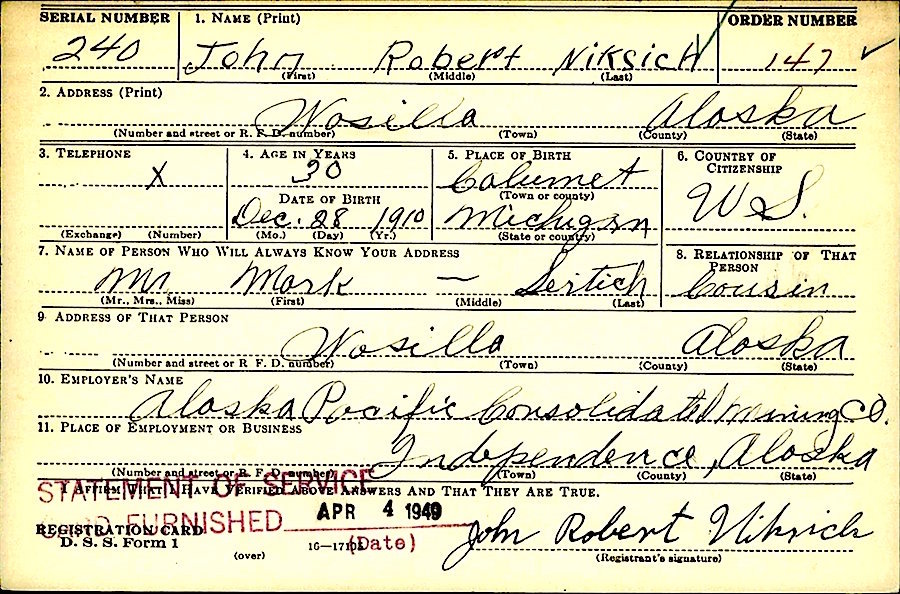 SERIAL NUMBER 1. NAME (Print) ORDER NUMBER
240 John Robert Niksich 147 ✓
(First) (Middle) (Last)
2. ADDRESS (Print)
Wosilla Alaska
(Number and street or R. F. D. number) (Town) (County) (State)
3. TELEPHONE 4. AGE IN YEARS 5. PLACE OF BIRTH 6. COUNTRY OF CITIZENSHIP
X 30 Calumet U S.
(Town or county)
DATE OF BIRTH
Dec. 28 1910 Michigan
(Exchange) (Number) (Mo.) (Day) (Yr.) (State or country)
7. NAME OF PERSON WHO WILL ALWAYS KNOW YOUR ADDRESS 8. RELATIONSHIP OF THAT PERSON
Mr Mark — Sertich Cousin
(Mr., Mrs., Miss) (First) (Middle) (Last)
9. ADDRESS OF THAT PERSON
Wosilla Alaska
(Number and street or R. F. D. number) (Town) (County) (State)
10. EMPLOYER'S NAME
Alaska Pacific Consolidated Mining CO.
11. PLACE OF EMPLOYMENT OR BUSINESS
Independence, Alaska
(Number and street or R. F. D. number) (Town) (County) (State)
I AFFIRM THAT I HAVE VERIFIED ABOVE ANSWERS AND THAT THEY ARE TRUE.
STATEMENT OF SERVICE
FURNISHED APR 4 1949
(Date)
REGISTRATION CARD
D. S. S. Form 1
(over) John Robert Niksich
(Registrant's signature)